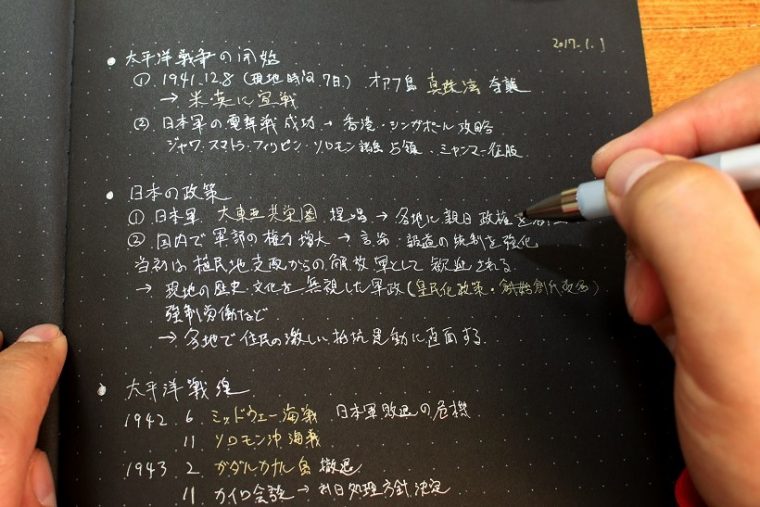 2017.1.1
● 太平洋戦争の開始
① 1941.12.8 (現地時間7日) オアフ島 真珠湾 奇襲
→ 米英に宣戦
② 日本軍の電撃戦 成功 → 香港・シンガポール 攻略
ジャワ. スマトラ. フィリピン. ソロモン諸島 占領. ミャンマー征服
● 日本の政策
① 日本軍. 大東亜共栄圏 提唱 → 各地に親日政権を
② 国内で軍部の権力増大 → 言論・報道の統制を強化
当初は植民地支配からの解放軍として歓迎される.
→ 現地の歴史・文化を無視した軍政 (皇民化政策・創氏改名)
強制労働など
→ 各地で住民の激しい抵抗運動に直面する.
● 太平洋戦線
1942 . 6 ミッドウェー海戦 日本軍敗退の危機
11 ソロモン沖海戦
1943 . 2 ガダルカナル島 撤退
11 カイロ会談 → 対日処理方針 決定